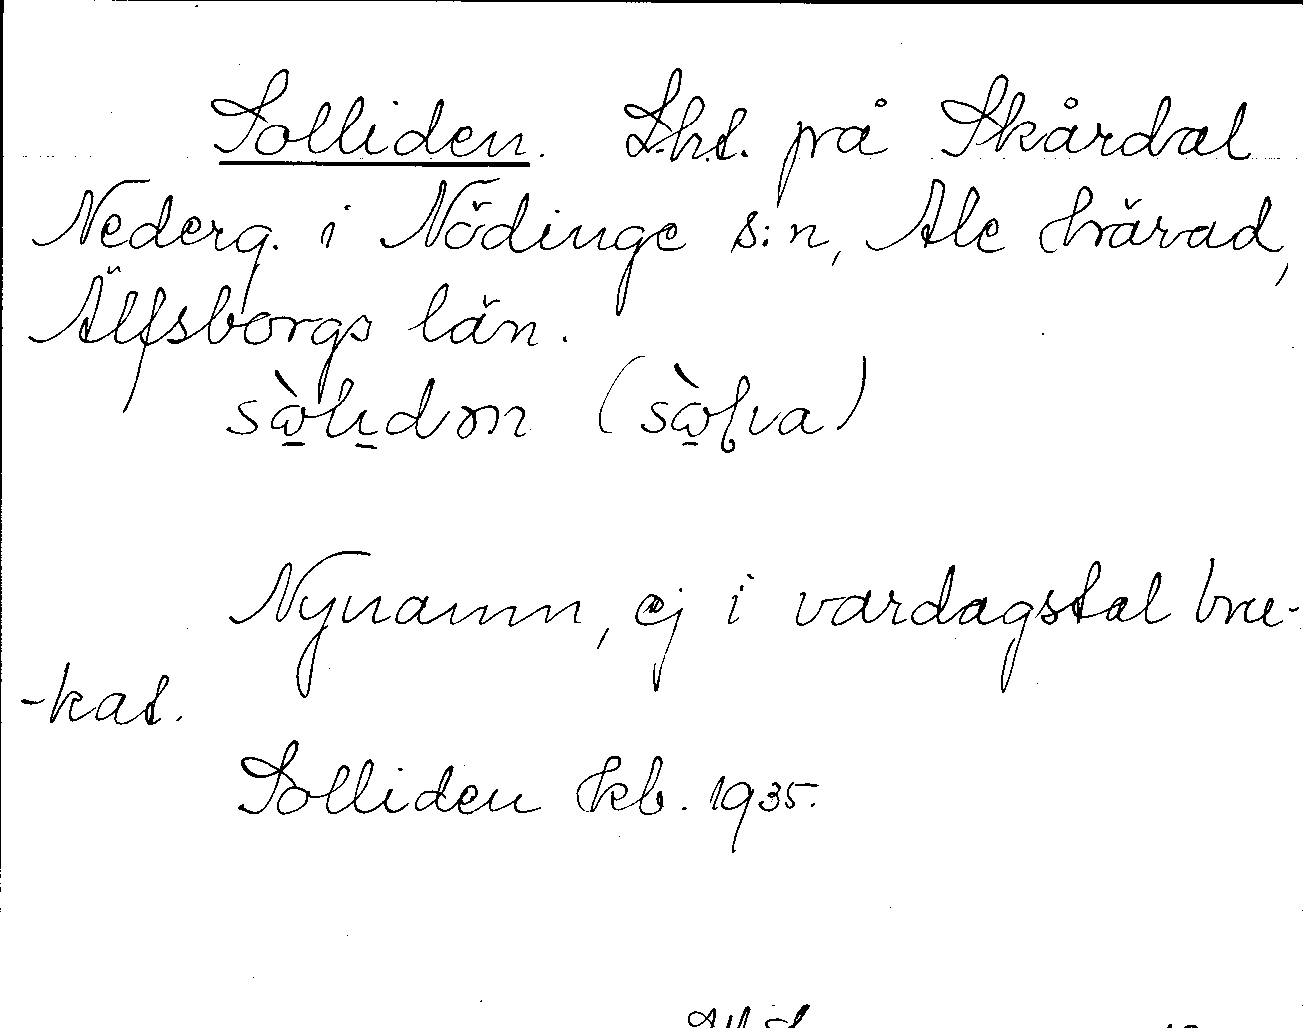 Solliden. Lht. på Skårdal
Nederg. i Nödinge s:n, Ale härad,
Älfsborgs län.
Nynamn, ej i vardagstal bru-
-kat.
Solliden kb. 1935.